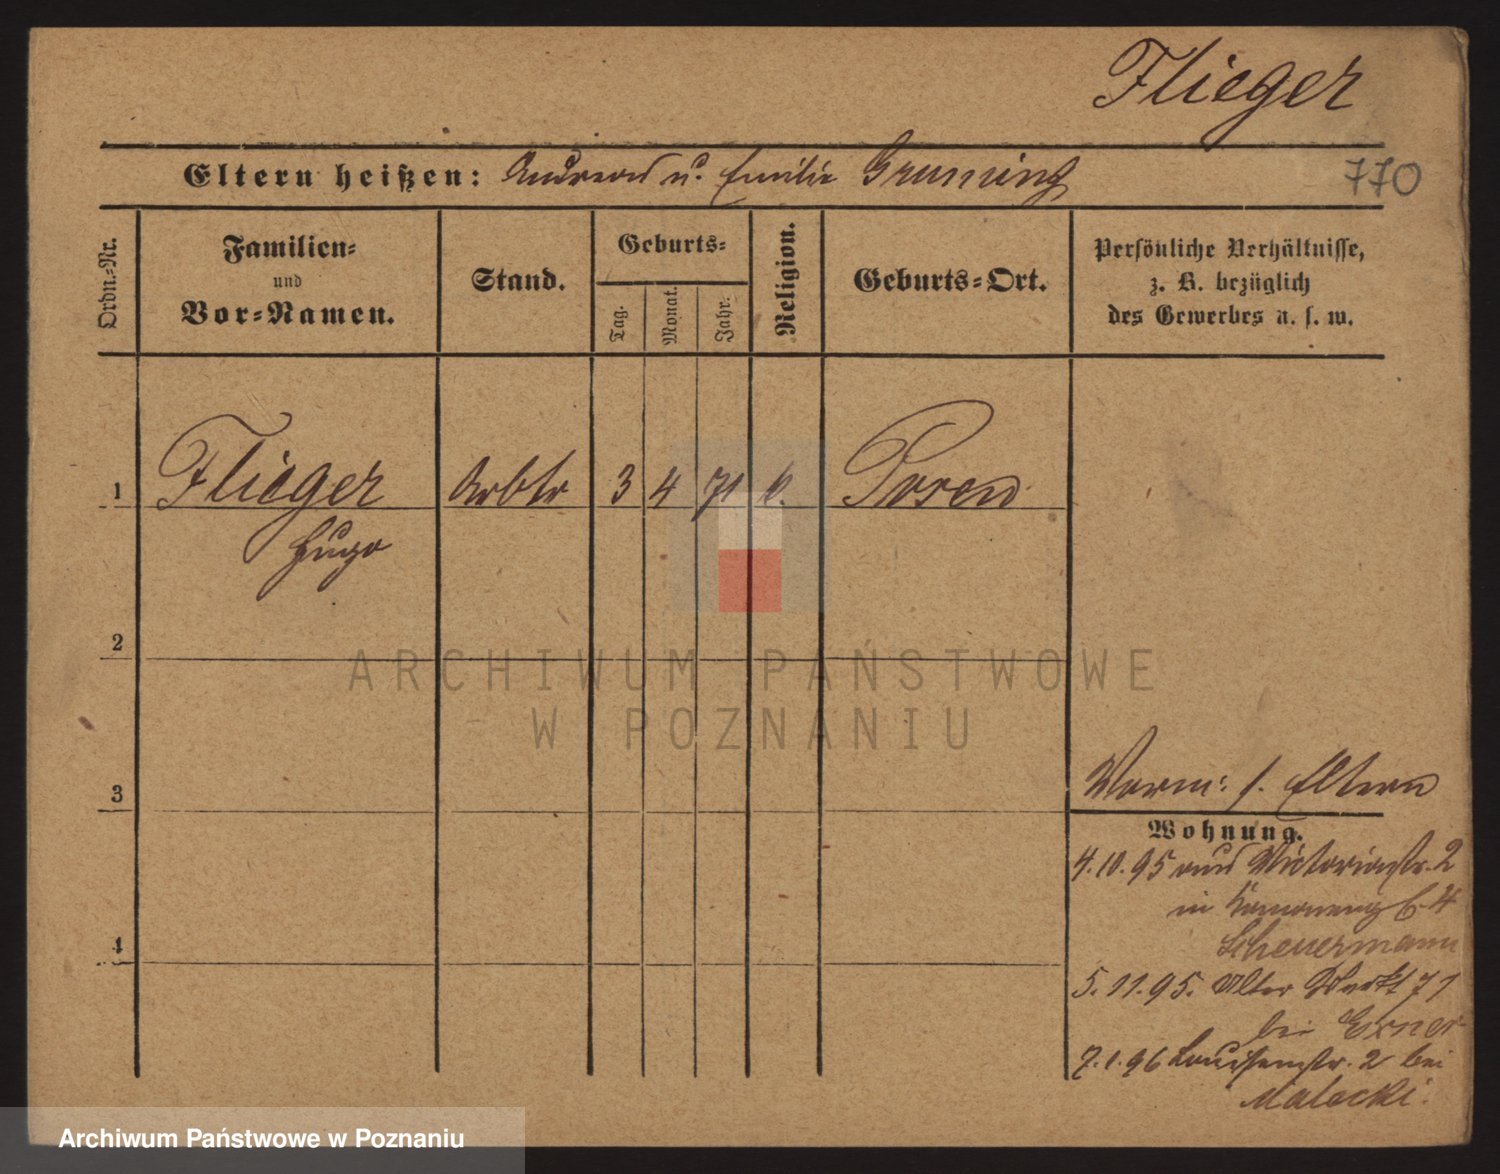 Flieger
Eltern heißen: Andreas u. Emilie Gruning
770
Ordn.-Nr.
Familien-
und
Vor-Namen.
Stand.
Geburts-
Tag.
Monat.
Jahr.
Religion.
Geburts-Ort.
Persönliche Verhältnisse,
z. B. bezüglich
des Gewerbes u. s. w.
1 Flieger Arbtr 3 4 71 k. Posen
Hugo
2
3
4
Vorm: s. Eltern
Wohnung.
4.10.95 aus Victoriastr. 2
in
Scheuermann
5.11.95. Alter Markt 71
bei Exner
7.1.96 Louisenstr. 2 bei
Malecki.
ARCHIWUM PAŃSTWOWE
W POZNANIU
Archiwum Państwowe w Poznaniu